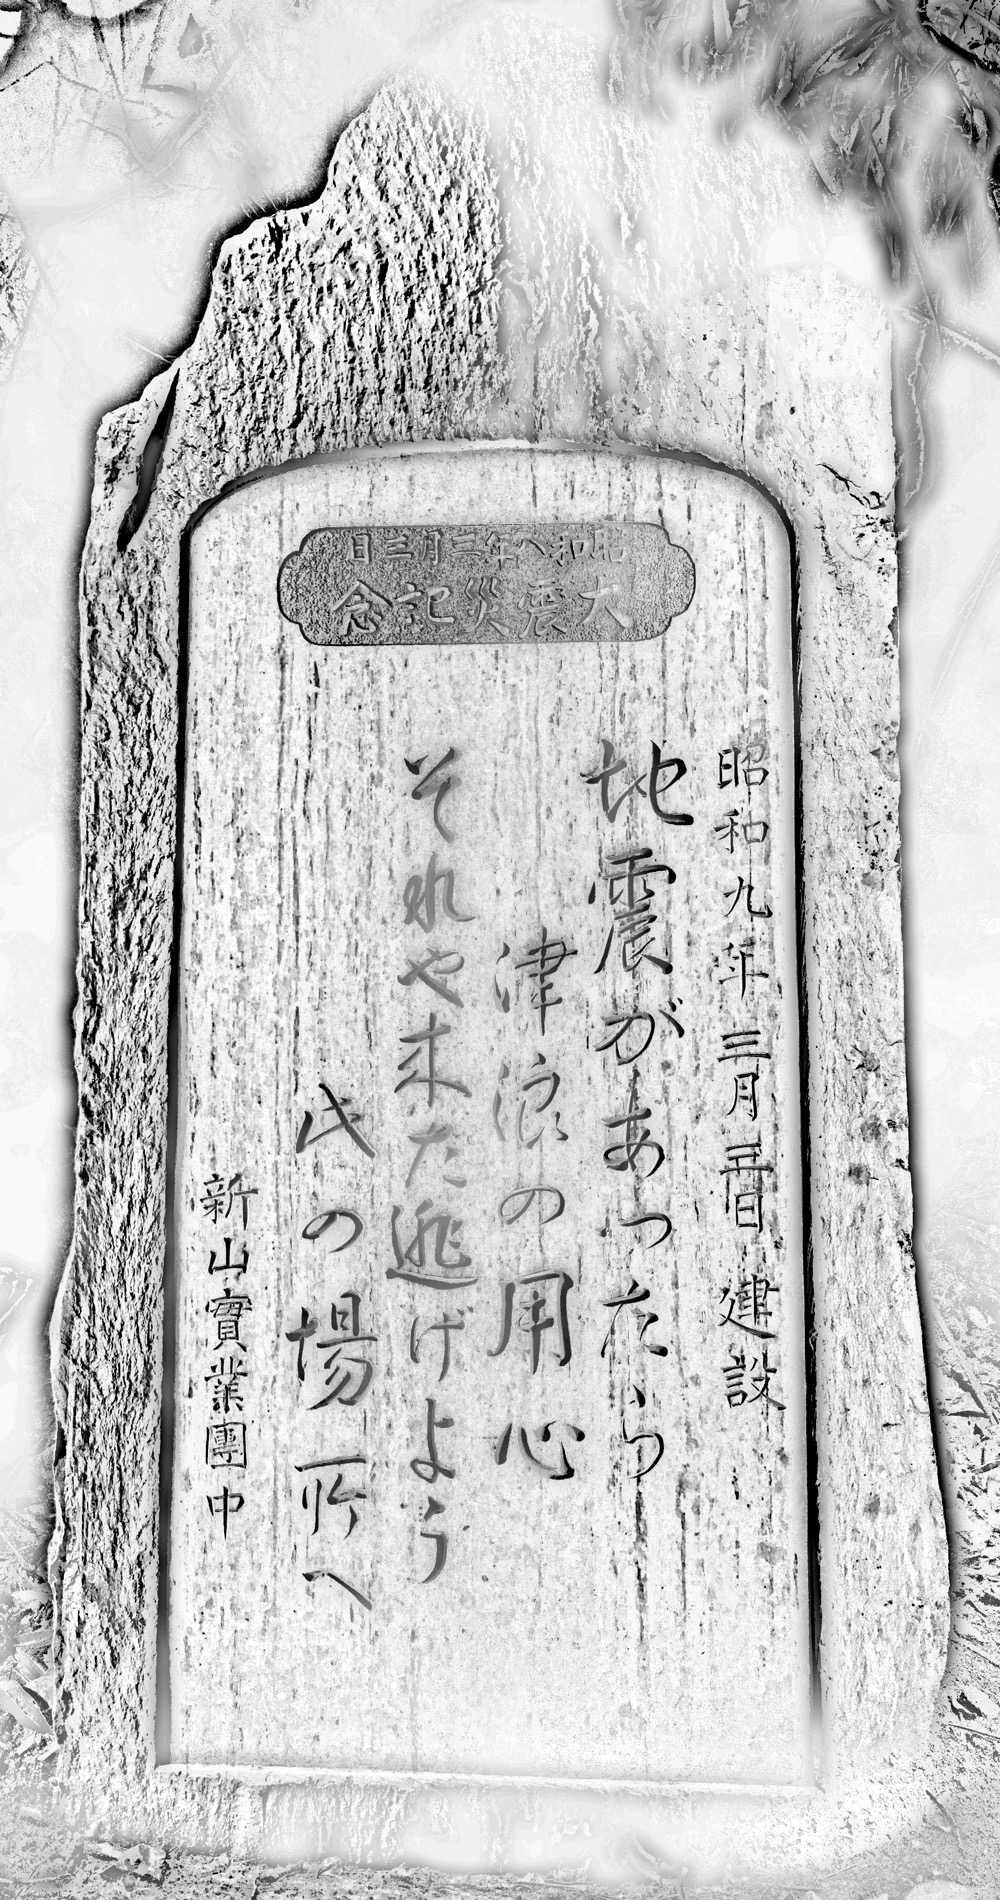 昭和八年三月三日
大震災記念
昭和九年三月三日 建設
地震があつたら
津浪の用心
それや来た逃げよう
此の場所へ
新山實業團中